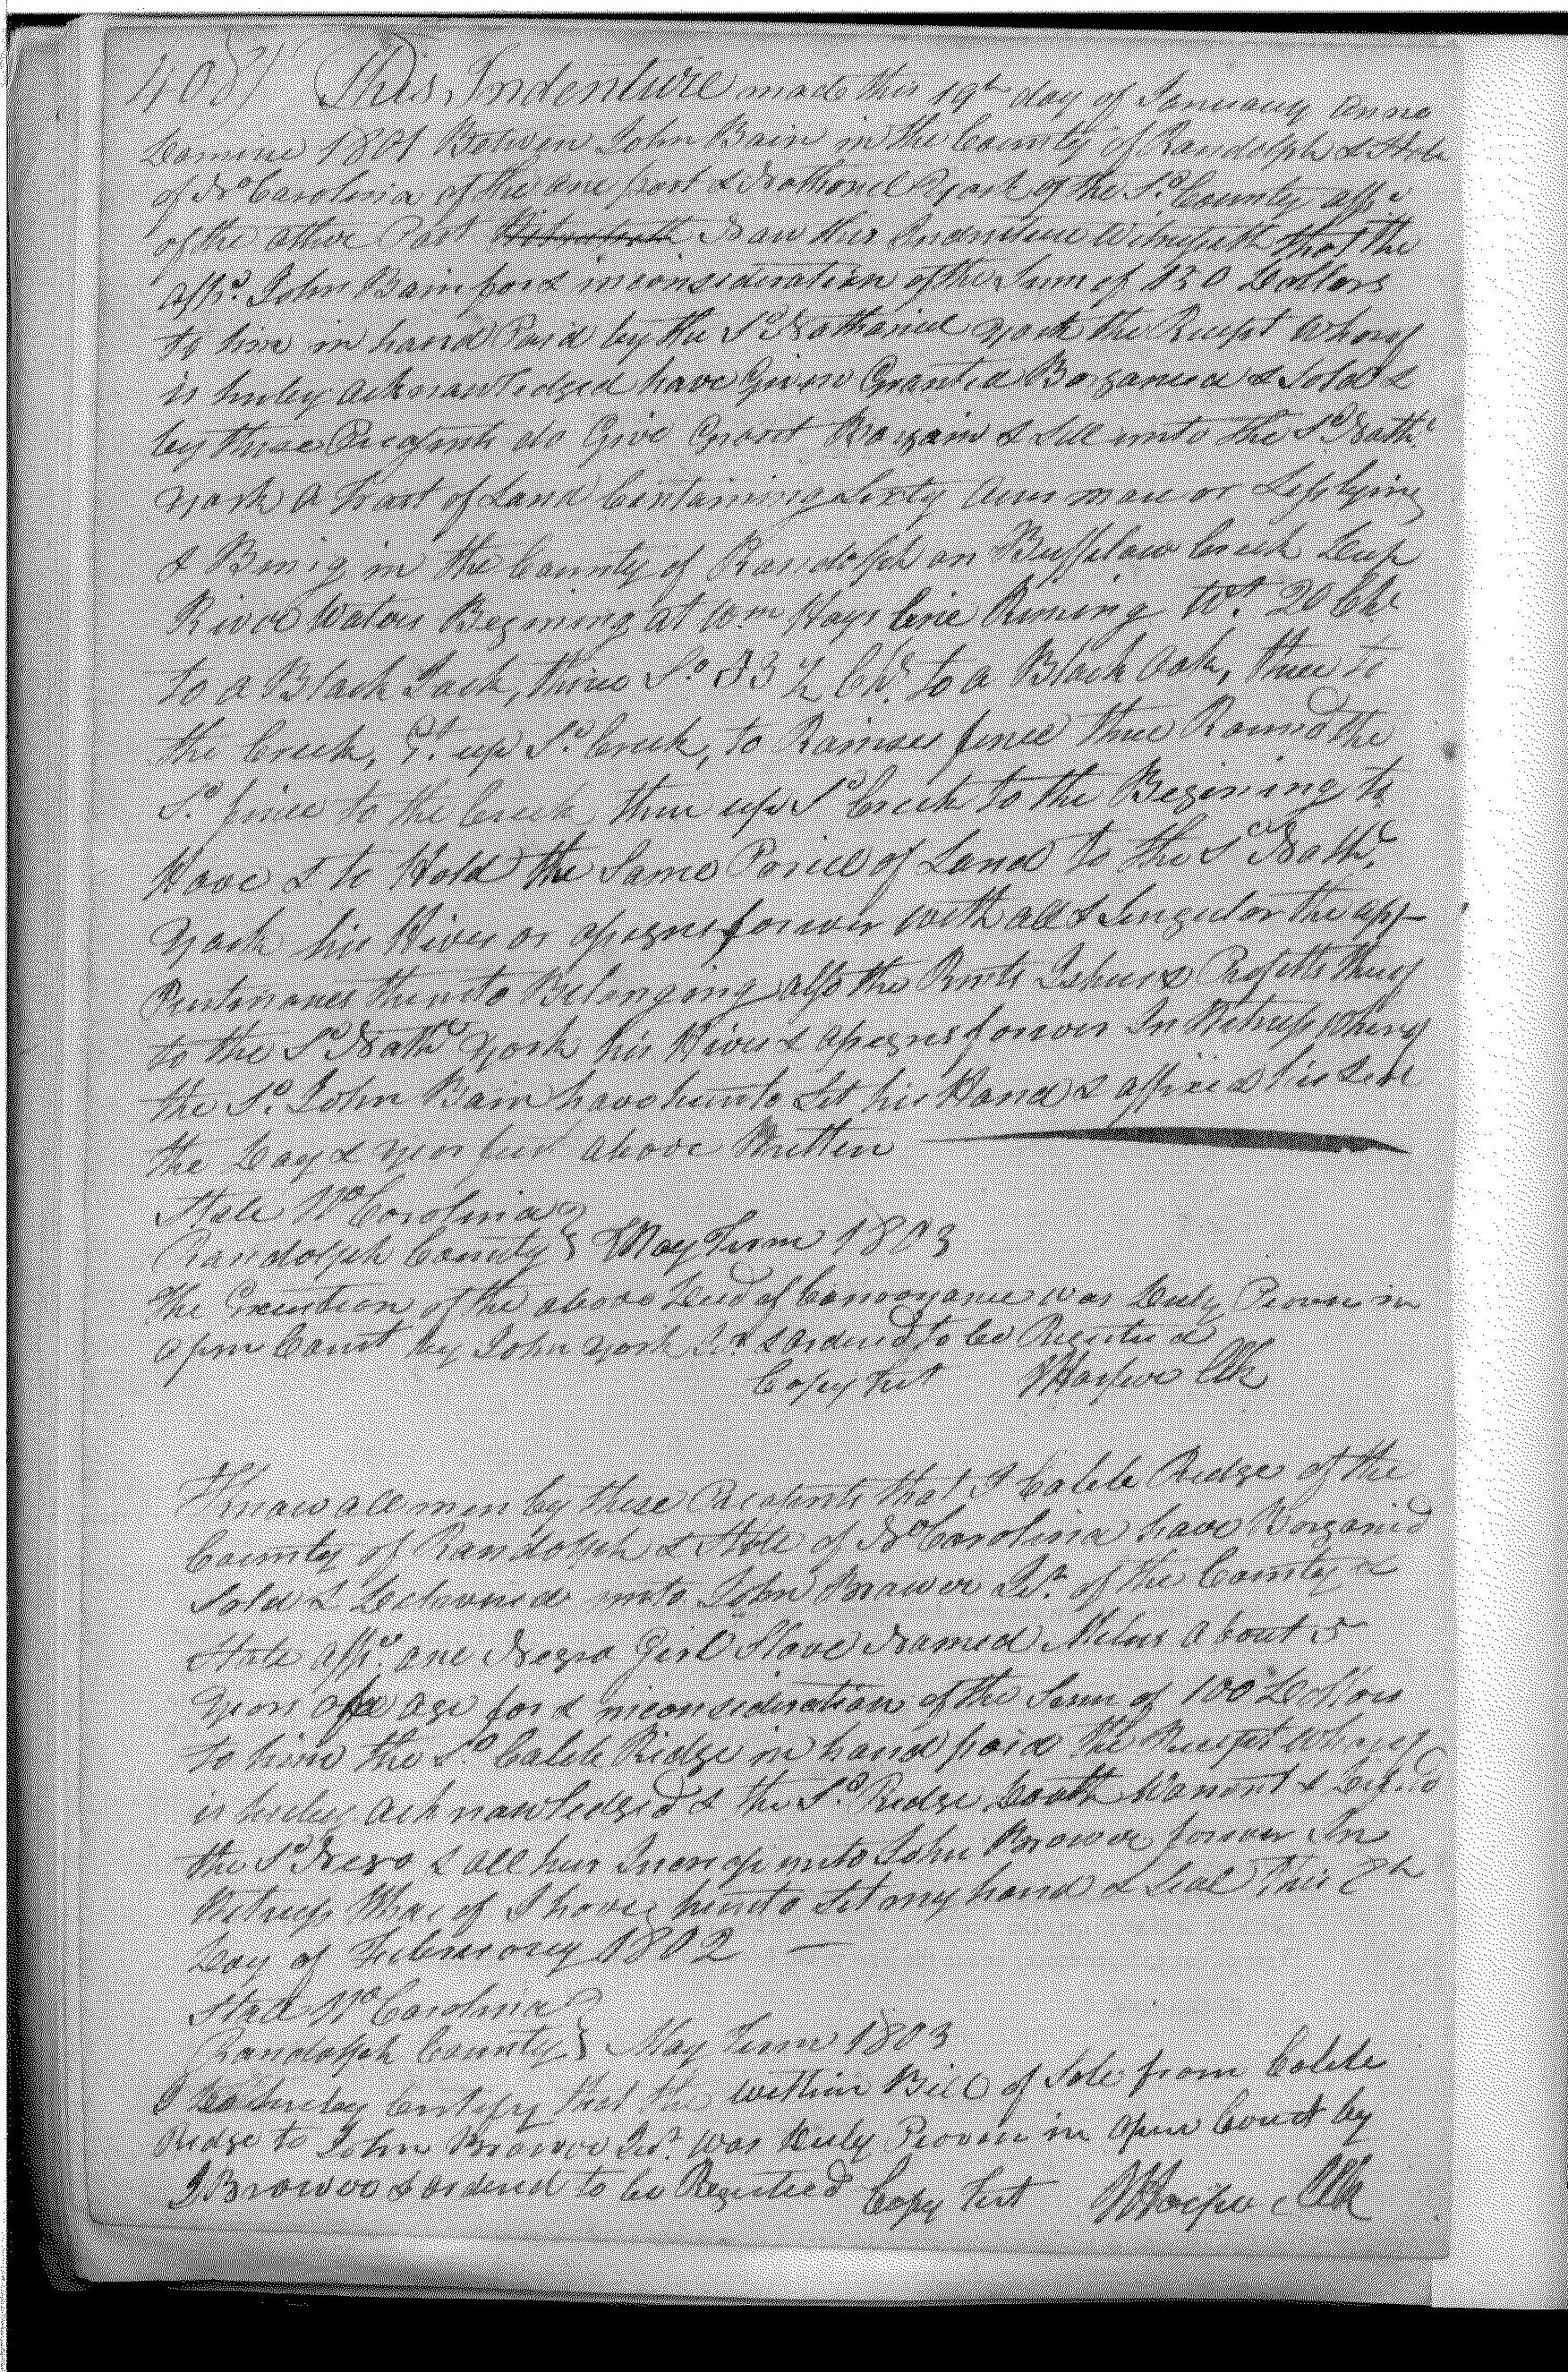 408 / This Indenture made this 19th day of January Anno
Domine 1801 Betwen John Bain in the County of Randolph & State
of No Carolina of the one part & Nathaniel York of the Sd. County affsd
of the other Part Now this Indenture Witnesseth that the
affsd. John Bain for & inconsideration of the Sum of 130 Dollars
to him in hand Paid by the Sd Nathaniel york the Recept whereof
is hireby acknowledged have Given Granted Barganed & Sold &
by these Presents do Give Grant Bargain & Sell unto the Sd Nathl
york a tract of Land Containing Sixty acres more or Less lying
& Being in the County of Randolph on Buffelow Creek Deep
River Waters Begining at Wm Hays line Runing Wt. 20 Chs
to a Black Jack, thince So. 33 1/2 Chs. to a Black oak, thence to
the Creek, up Sd. Creek, to Rains fence thence Round the
Sd. fence to the Creek then up Sd Creek to the Begining to
Have & to Hold the Same Parcel of Land to the Sd Nathl
york his Heires or assigns forever with all & Singular the app-
Purtinances thereto Belonging also the Rents Ishues & Profitts thereof
to the Sd Nathl york his Heires & assigns forever In Witness whereof
the Sd. John Bain have hereunto Set his Hand & affixed his Seal
the Day & year first above Written
State No Carolina }
Randolph County } May Term 1803
The Execution of the above Deed of Conveyance was Duly Proven in
open Court by John york & ordered to be Registerd
Copy test J Harper Clk
Know all men by these Presents that I Caleb Ridge of the
County of Randolph & State of No Carolina have Barganed
Sold & Delivered unto John Brower Jr. of the County &
State affsd. one Negro Girl Slave Named Milus about 5
years of age for & inconsideration of the Sum of 100 Dollars
to him the Sd Caleb Ridge in hand paid the Recept whereof
is hereby acknowledged & the Sd. Ridge Doath Warrant & Defend
the Sd Negro & all hur Increse unto John Brower forever In
Witness Whereof I have hereunto Set my hand & Seal This 8th
Day of February 1802
State No Carolina }
Randolph County } May Term 1803
I hereby Certify that the within Bill of Sale from Caleb
Ridge to John Brower Jur. was Duly Proven in open Court by
J Brower & ordered to be Registred Copy test J Harper Clk